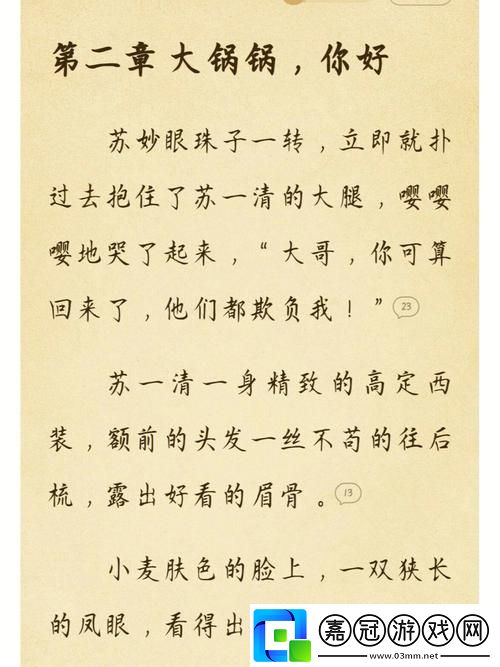 第二章 大锅锅，你好
苏妙眼珠子一转，立即就扑
过去抱住了苏一清的大腿，嘤嘤
嘤地哭了起来，“大哥，你可算
回来了，他们都欺负我！” 23
苏一清一身精致的高定西
装，额前的头发一丝不苟的往后
梳，露出好看的眉骨。 13
小麦肤色的脸上，一双狭长
的凤眼，看得出
嘉冠游戏网
www.03mm.net